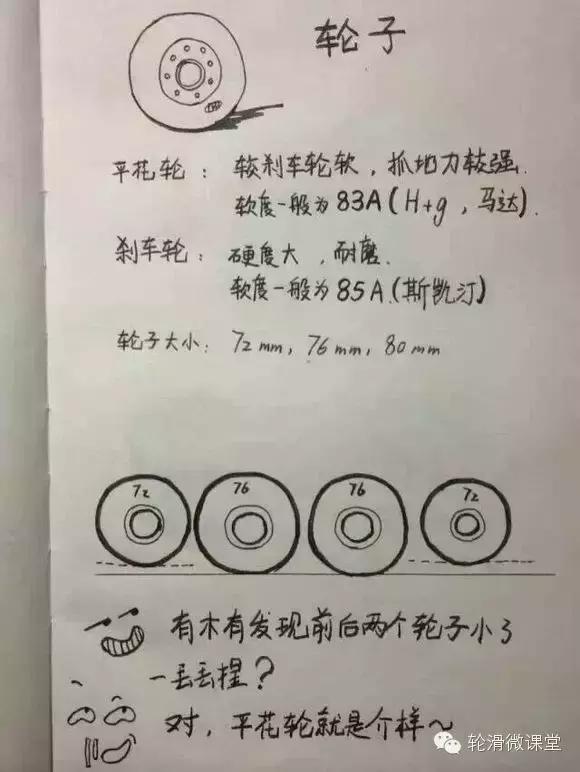 轮子
平花轮：较刹车轮软，抓地力较强.
软度一般为83A(H+g，马达).
刹车轮：硬度大，耐磨.
软度一般为85A.(斯凯汀)
轮子大小：72mm，76mm，80mm
72 76 76 72
有木有发现前后两个轮子小了
一丢丢捏？
对，平花轮就是介样～
轮滑微课堂